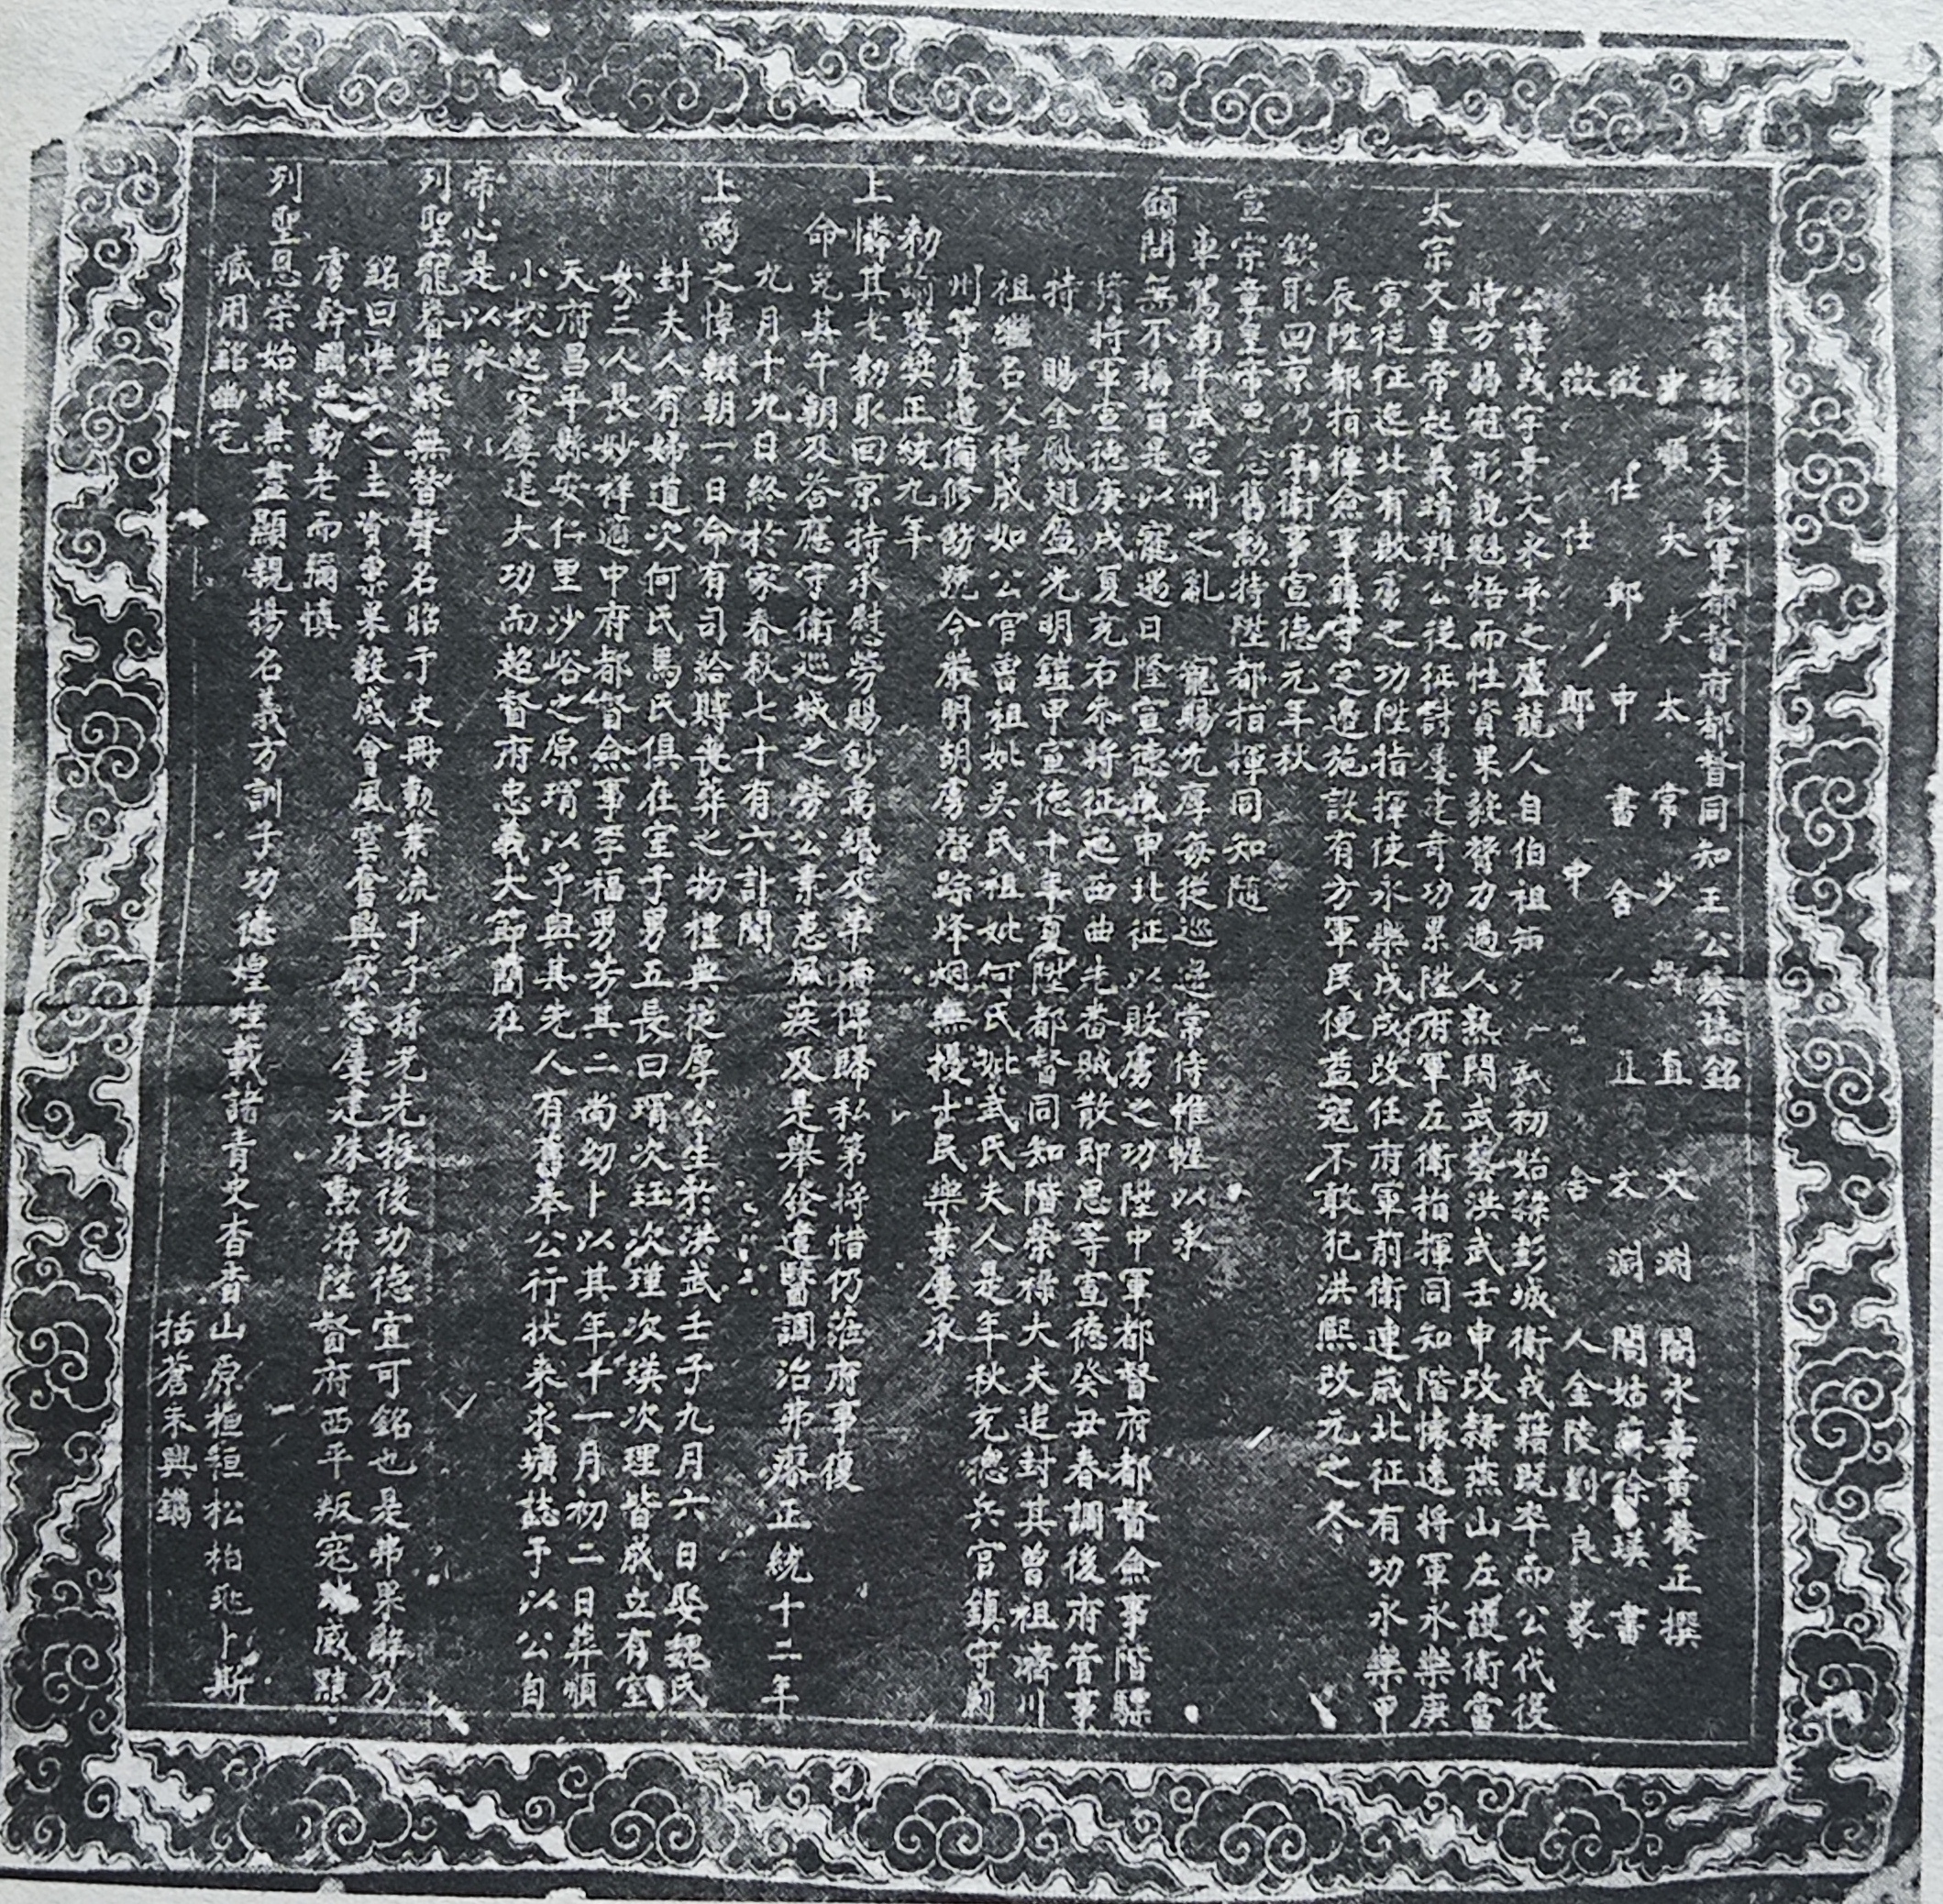 故榮祿大夫後軍都督府都督同知王公墓誌銘
大夫太常少卿直文淵閣永嘉黃養正撰
徵仕郎中書舍人直文淵閣姑蘇徐瑛書
徵仕郎中舍人金陵劉良篆
公諱彧字景文永平之盧龍人自伯祖初始隸彭城衛戎籍既卒而公代役
時方弱冠形貌魁梧而性資果毅膂力過人熟閑武藝洪武壬申改隸燕山左護衛當
太宗文皇帝起義靖難公從征討屢建奇功累陞府軍左衛指揮同知階懷遠將軍永樂庚
寅從征迤北有敗虜之功陞指揮使永樂戊戌改任府軍前衛連歲北征有功永樂甲
辰陞都指揮僉事鎮守定邊施設有方軍民便益寇不敢犯洪熙改元之冬
欽取回京仍掌衛事宣德元年秋
宣宗章皇帝思念舊勲特陞都指揮同知隨
車駕南平武定州之亂寵賜尤厚每從巡邊常侍帷幄以承
顧問無不稱旨是以寵遇日隆宣德戊申北征以敗虜之功陞中軍都督府都督僉事階驃
騎將軍宣德庚戌夏充右參將征迤西曲先番賊散即思等宣德癸丑春調後府管事
特賜金鳳翅盔光明鎧甲宣德十年夏陞都督同知階榮祿大夫追封其曾祖濟川
祖繼名父得成如公官曾祖妣吳氏祖妣何氏妣武氏夫人是年秋充總兵官鎮守薊
州等處邊備修飭號令嚴明胡虜潛踪烽烟無擾士民樂業屢承
勑諭獎正統九年
上憐其老勑取回京特承慰勞賜鈔萬緡及羊酒俾歸私第將惜仍蒞府事復
命免其午朝及答應宿衛巡城之勞公素患風疾及是舉發遣醫調治弗瘳正統十二年
九月十九日終於家春秋七十有六訃聞
上爲之悼輟朝一日命有司給賻喪葬之物禮與從厚公生於洪武壬子九月六日娶魏氏
封夫人有婦道次何氏馬氏俱在室子男五長曰瑁次珏次瑾次瑛次理皆成立有室
女三人長妙祥適中府都督僉事李福男芳其二尚幼卜以其年十一月初二日葬順
天府昌平縣安仁里沙峪之原瑁以予與其先人有舊奉公行狀來求壙誌予以公自
小校起家屢建大功而超督府忠義大節簡在
帝心是以永
列聖寵眷始終無替聲名昭于史冊勲業流于子孫光先振後功德宜可銘也是弗果辭乃
銘曰惟之主資稟果毅感會風雲奮興厥志屢建殊勲洊陞督府西平叛寇威隸
虜幹國勤老而彌慎
列聖恩榮始終無盡顯親揚名義方訓子功德煌煌載諸青史杳杳山原桓桓松柏兆卜斯
臧用銘幽宅
括蒼朱興鐫